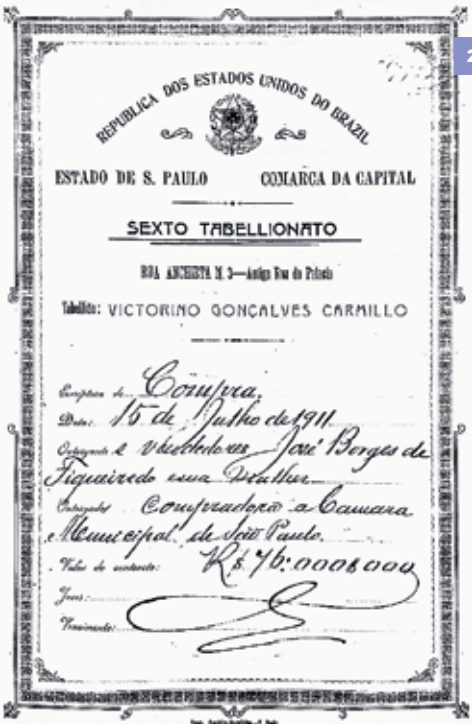 2
REPUBLICA DOS ESTADOS UNIDOS DO BRAZIL
ESTADO DE S. PAULO COMARCA DA CAPITAL
SEXTO TABELLIONATO
RUA ANCHIETA N. 3—Antiga Rua do Palacio
Tabellião: VICTORINO GONÇALVES CARMILLO
Escriptura de Compra.
Data: 15 de Julho de 1911
Outorgante e vendedores José Borges de
Figueiredo e sua mulher
Outorgados Compradora a Camara
Municipal de São Paulo.
Valor do contracto: Rs. 76:000$000
Juros:
Vencimento: